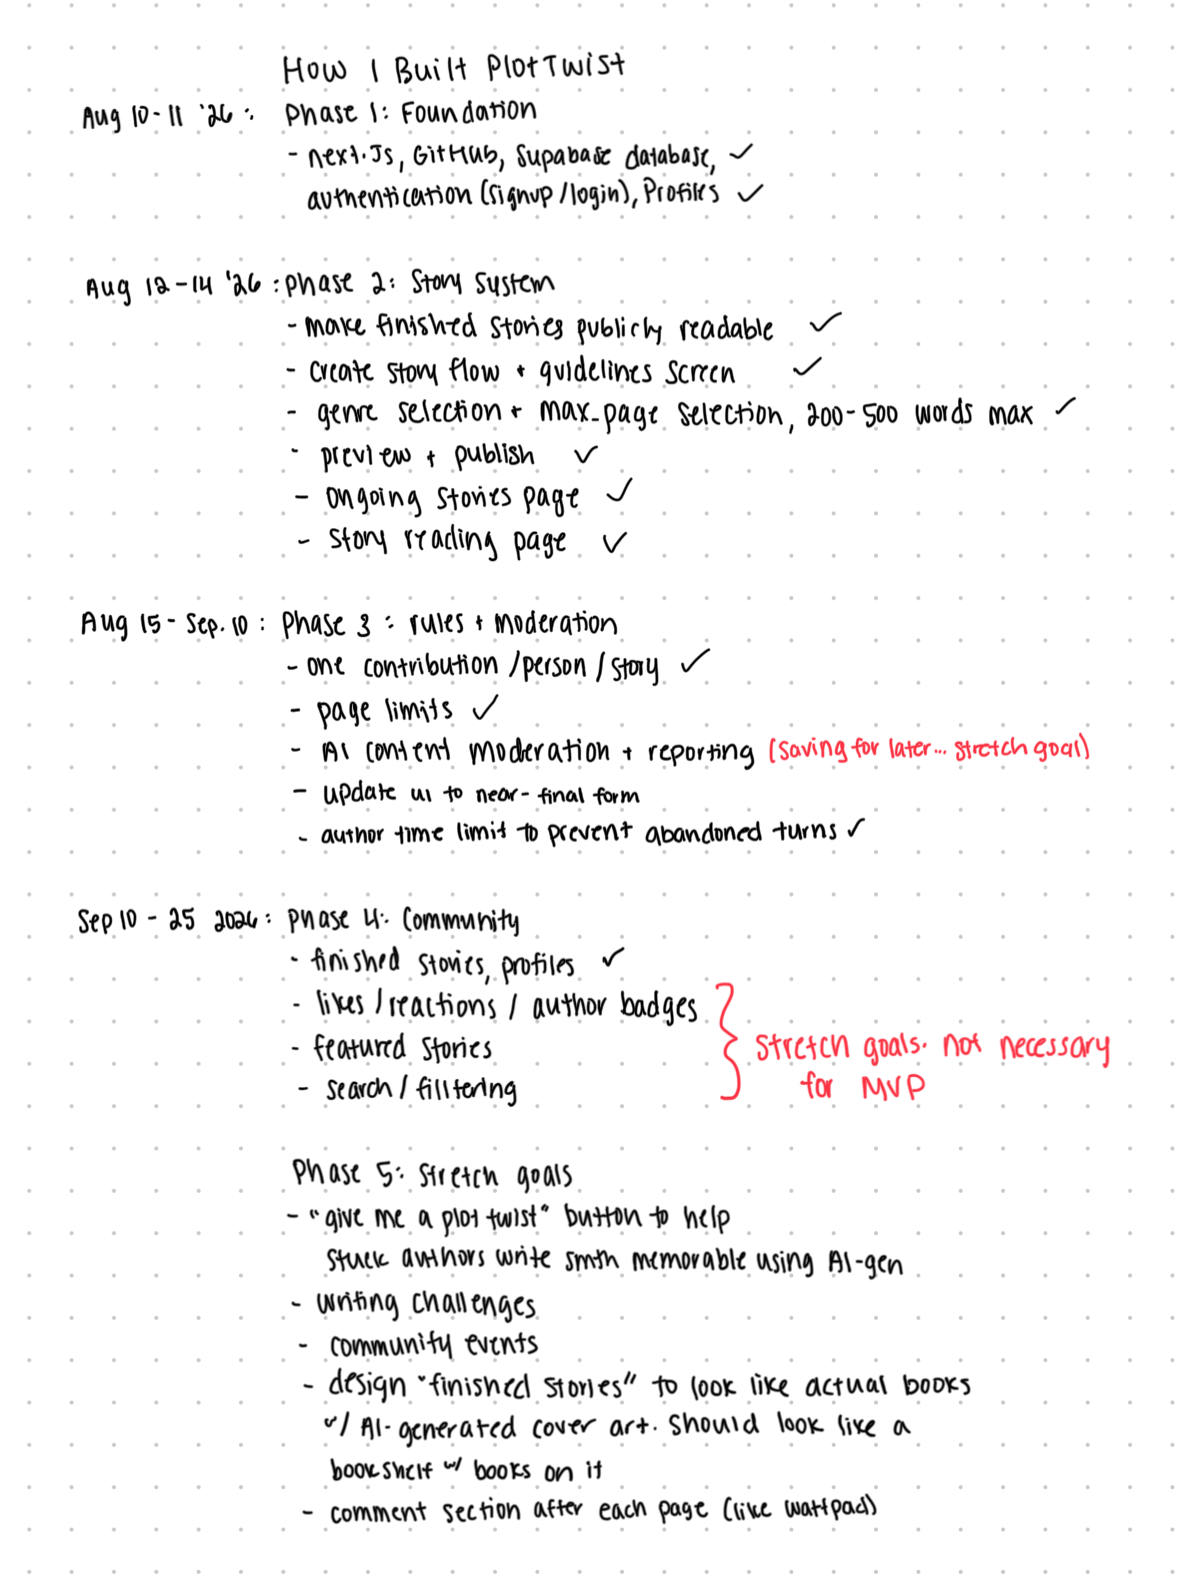 How I Built PlotTwist
Aug 10-11 '26: Phase 1: Foundation
- next.Js, GitHub, Supabase database, ✓
authentication (signup/login), Profiles ✓
Aug 12-14 '26: phase 2: Story System
- make finished stories publicly readable ✓
- create story flow + guidelines screen ✓
- genre selection + max-page selection, 200-500 words max ✓
- preview + publish ✓
- ongoing stories page ✓
- story reading page ✓
Aug 15 - Sep. 10: Phase 3: rules + moderation
- one contribution/person/story ✓
- page limits ✓
- AI content moderation + reporting (saving for later... stretch goal)
- update ui to near-final form
- author time limit to prevent abandoned turns ✓
Sep 10 - 25 2026: phase 4: Community
- finished stories, profiles ✓
- likes/reactions/author badges
- featured stories
stretch goals. not necessary
- search/filltering
for MVP
Phase 5: stretch goals
- "give me a plot twist" button to help
stuck authors write smth memorable using AI-gen
- writing challenges
- community events
- design "finished stories" to look like actual books
w/ AI-generated cover art. should look like a
bookshelf w/ books on it
- comment section after each page (like wattpad)